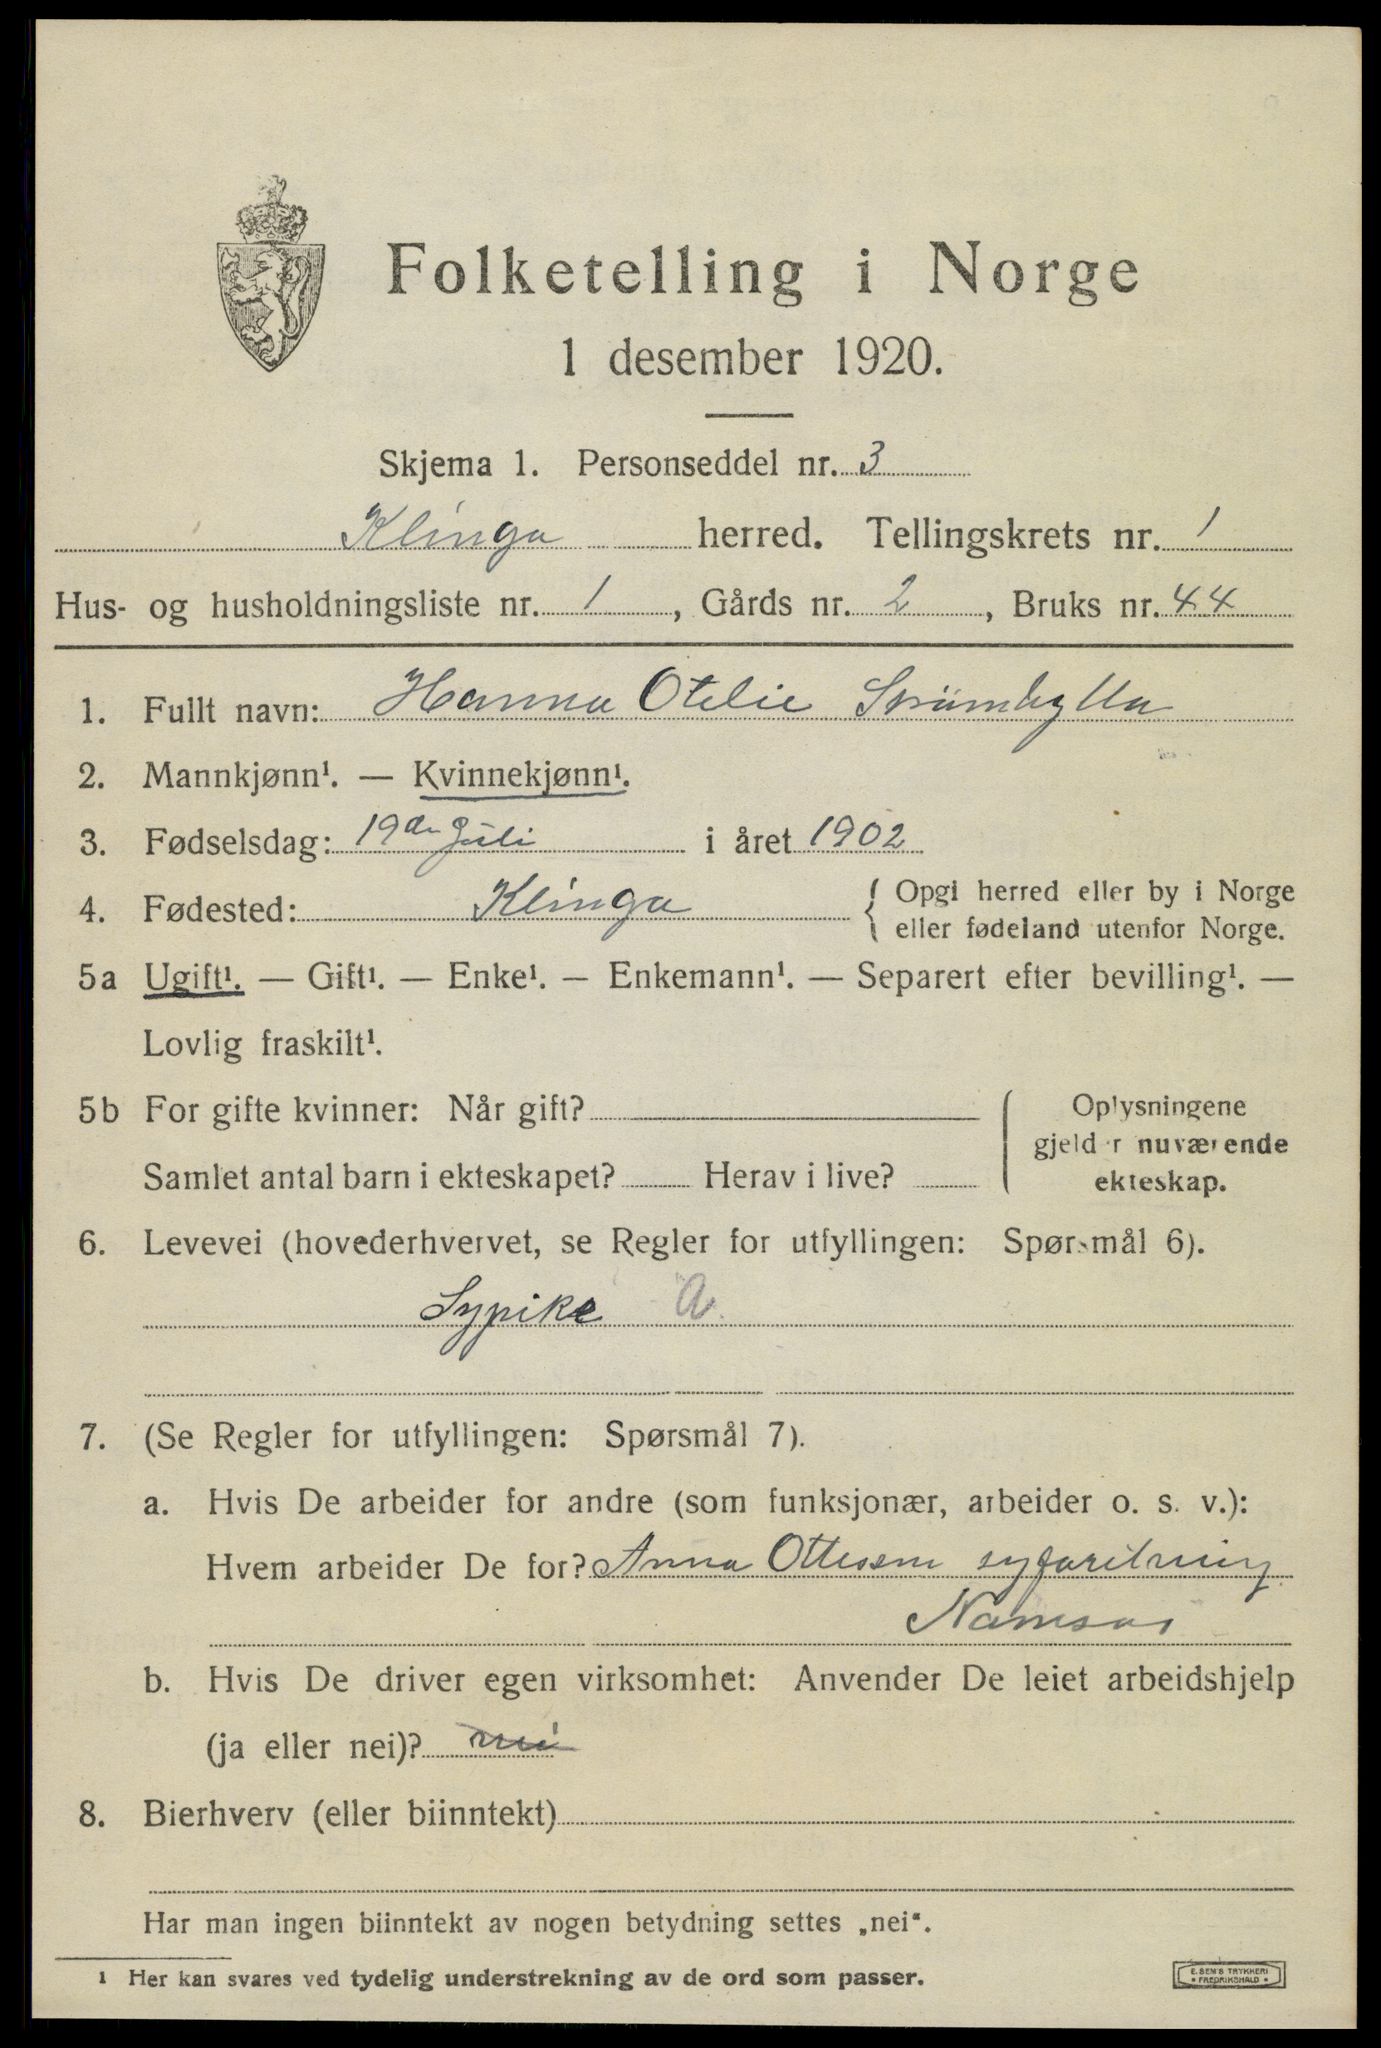 Folketelling i Norge
1 desember 1920.
Skjema 1. Personseddel nr. 3
Klinga herred. Tellingskrets nr. 1
Hus- og husholdningsliste nr. 1, Gårds nr. 2, Bruks nr. 44
1. Fullt navn: Hanna Otelie Strömhylla
2. Mannkjønn¹. — Kvinnekjønn¹.
3. Fødselsdag: 19de Juli i året 1902
4. Fødested: Klinga { Opgi herred eller by i Norge
eller fødeland utenfor Norge.
5a Ugift¹. — Gift¹. — Enke¹. — Enkemann¹. — Separert efter bevilling¹. —
Lovlig fraskilt¹.
5b For gifte kvinner: Når gift? Oplysningene
gjelder nuværende
Samlet antal barn i ekteskapet? Herav i live? ekteskap.
6. Levevei (hovederhvervet, se Regler for utfyllingen: Spørsmål 6).
Sypike A
7. (Se Regler for utfyllingen: Spørsmål 7).
a. Hvis De arbeider for andre (som funksjonær, arbeider o. s. v.):
Hvem arbeider De for? Anna Ottessen syforetning
Namsos
b. Hvis De driver egen virksomhet: Anvender De leiet arbeidshjelp
(ja eller nei)? nei
8. Bierhverv (eller biinntekt)
Har man ingen biinntekt av nogen betydning settes „nei“.
1 Her kan svares ved tydelig understrekning av de ord som passer.
E. SEM'S TRYKKERI
FREDRIKSHALD